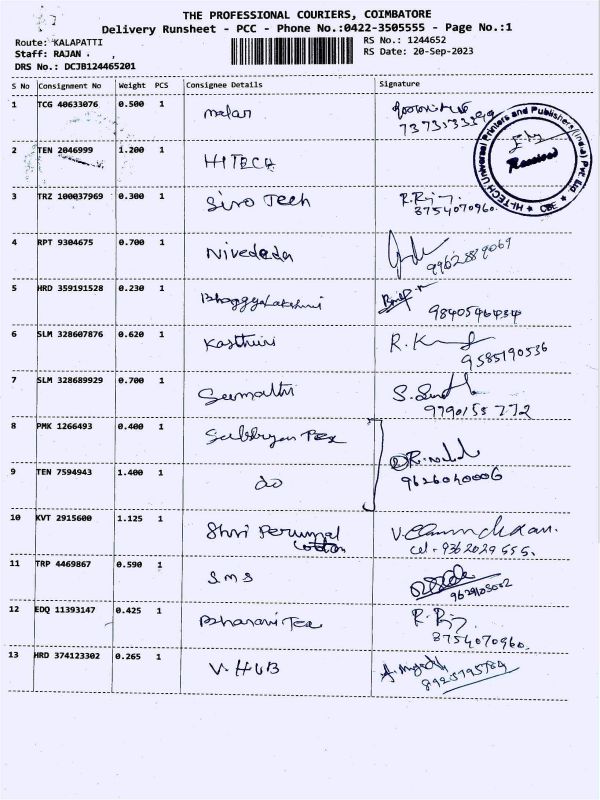 THE PROFESSIONAL COURIERS, COIMBATORE
Delivery Runsheet - PCC - Phone No.:0422-3505555 - Page No.:1
Route: KALAPATTI
RS No.: 1244652
Staff: RAJAN
RS Date: 20-Sep-2023
DRS No.: DCJB124465201
S No Consignment No Weight PCS Consignee Details Signature
1 TCG 40633076 0.500 1 malar
2 TEN 2046999 1.200 1 HITECH
HI-TECH Universal Printers and Publishers(India) Pvt. Ltd. ★ CBE ★
Received
3 TRZ 100037969 0.300 1 Siro Tech
8754070960.
4 RPT 9304675 0.700 1 Nivededa
9962889069
5 HRD 359191528 0.230 1 BhaggyaLakshmi
9840546434
6 SLM 328607876 0.620 1 Kasthuri
9585190536
7 SLM 328689929 0.700 1 Sumathi
9790155772
8 PMK 1266493 0.400 1
9 TEN 7594943 1.400 1 do
9626040006
10 KVT 2915600 1.125 1 Shri Perumal Cotton
cel - 9362029555.
11 TRP 4469867 0.590 1 SMS
12 EDQ 11393147 0.425 1 Bharani Tex
8754070960.
13 HRD 374123302 0.265 1 V-HUB